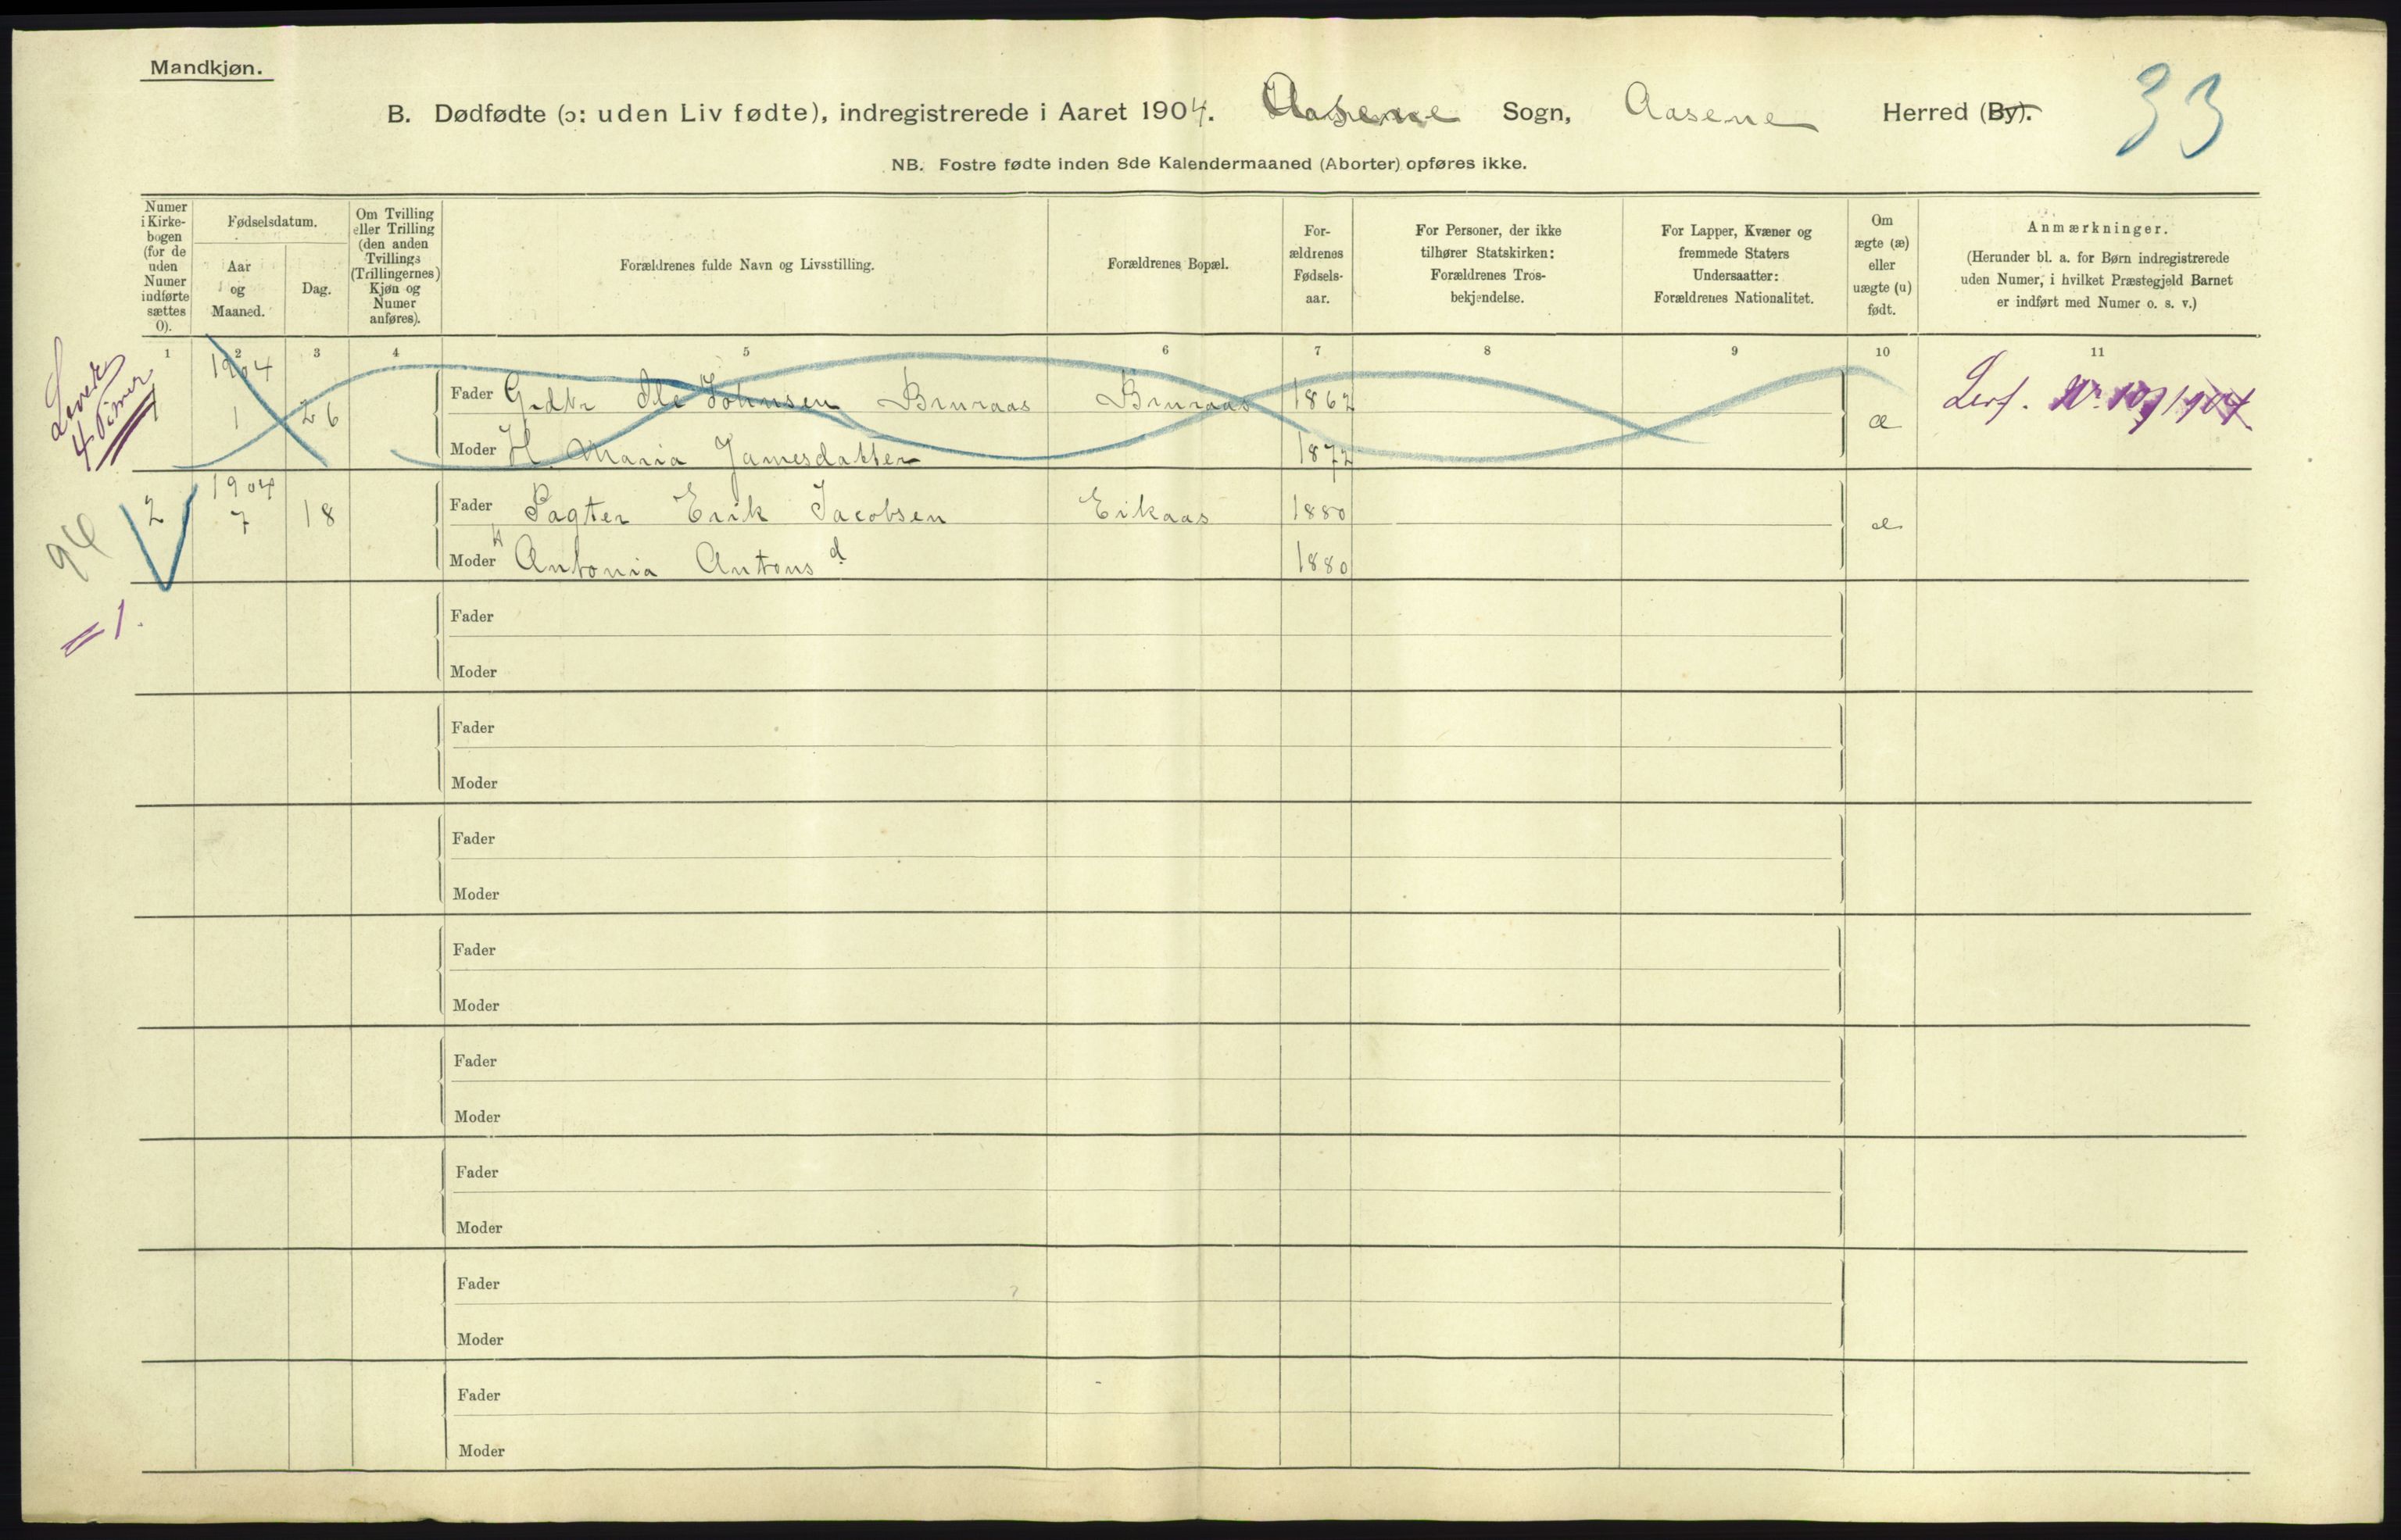 Mandkjøn.
B. Dødfødte (ɔ: uden Liv fødte), indregistrerede i Aaret 1904. Aasene Sogn, Aasene Herred (By).
33
NB. Fostre fødte inden 8de Kalendermaaned (Aborter) opføres ikke.
Numer
i Kirke-
bogen
(for de
uden
Numer
indførte
sættes
0).
Fødselsdatum.
Aar
og
Maaned.
Dag.
Om Tvilling
eller Trilling
(den anden
Tvillings
(Trillingernes)
Kjøn og
Numer
anføres).
Forældrenes fulde Navn og Livsstilling.
Forældrenes Bopæl.
For-
ældrenes
Fødsels-
aar.
For Personer, der ikke
tilhører Statskirken:
Forældrenes Tros-
bekjendelse.
For Lapper, Kvæner og
fremmede Staters
Undersaatter:
Forældrenes Nationalitet.
Om
ægte (æ)
eller
uægte (u)
født.
Anmærkninger.
(Herunder bl. a. for Børn indregistrerede
uden Numer, i hvilket Præstegjeld Barnet
er indført med Numer o. s. v.)
1 2 3 4 5 6 7 8 9 10 11
Levet
4 Timer
1
1904
1 26
Fader Grdbr Ole Johnsen Bruraas Bruraas 1862
Moder H. Maria Jamesdatter 1872
æ
1904
2 7 18
Fader Pagter Erik Jacobsen Eikaas 1880
Moder H Antonia Antonsd 1880
æ
94
= 1.
Fader
Moder
Fader
Moder
Fader
Moder
Fader
Moder
Fader
Moder
Fader
Moder
Fader
Moder
Fader
Moder